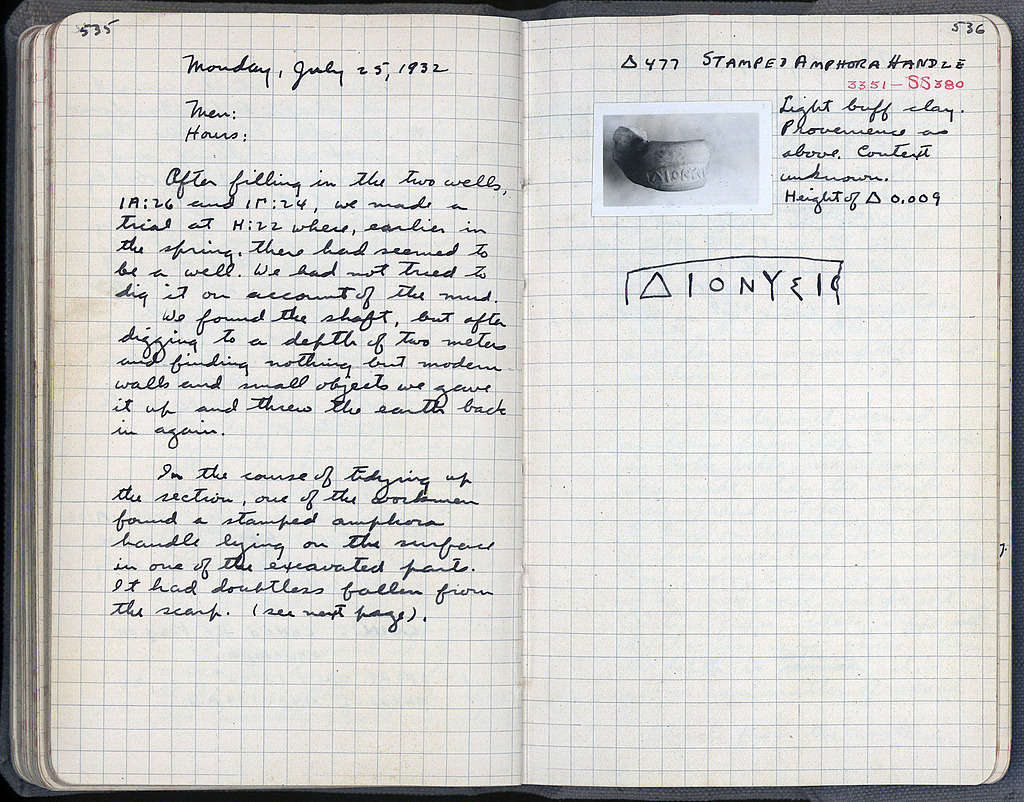 535
Monday, July 25, 1932
Men:
Hours:
After filling in the two wells,
1A:26 and 1Γ:24, we made a
trial at H:22 where, earlier in
the spring, there had seemed to
be a well. We had not tried to
dig it on account of the mud.
We found the shaft, but after
digging to a depth of two meters
and finding nothing but modern
walls and small objects we gave
it up and threw the earth back
in again.
In the course of tidying up
the section, one of the workmen
found a stamped amphora
handle lying on the surface
in one of the excavated parts.
It had doubtless fallen from
the scarp. (see next page).
536
Δ477 STAMPED AMPHORA HANDLE
3351-SS380
Light buff clay.
Provenience as
above. Context
unknown.
Height of Δ 0.009
ΔΙΟΝΥΣΙ